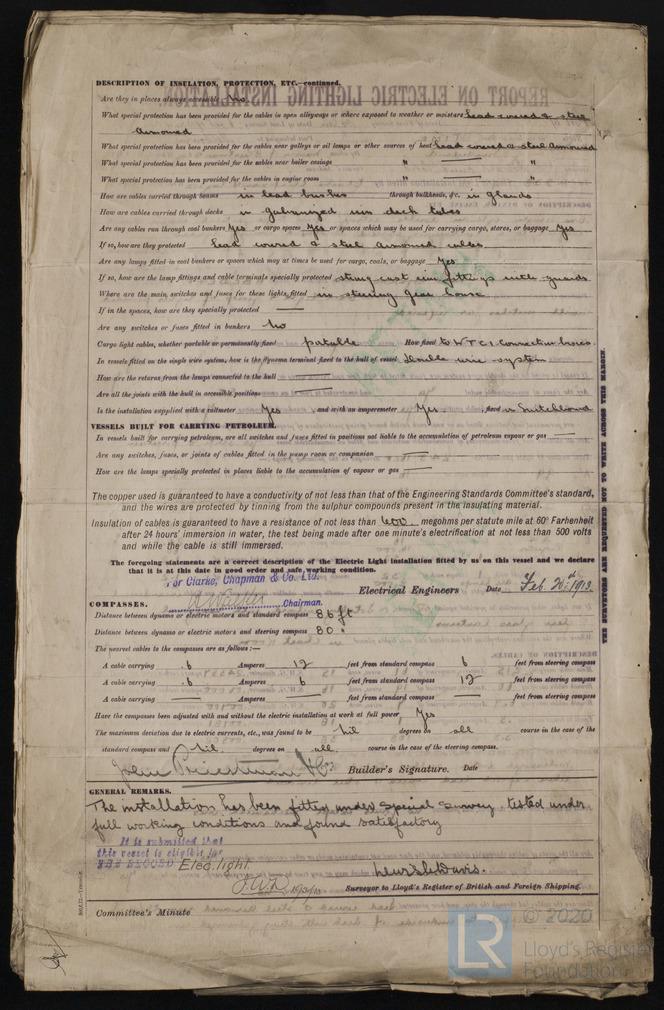 DESCRIPTION OF INSULATION, PROTECTION, ETC.—continued.
Are they in places always accessible No.
What special protection has been provided for the cables in open alleyways or where exposed to weather or moisture Lead covered & steel
Armoured
What special protection has been provided for the cables near galleys or oil lamps or other sources of heat Lead covered & steel Armoured
What special protection has been provided for the cables near boiler casings " — "
What special protection has been provided for the cables in engine room " — "
How are cables carried through beams in lead bushes through bulkheads, &c. in glands
How are cables carried through decks in galvanized iron deck tubes
Are any cables run through coal bunkers Yes or cargo spaces Yes or spaces which may be used for carrying cargo, stores, or baggage Yes
If so, how are they protected Lead covered & steel armoured cables
Are any lamps fitted in coal bunkers or spaces which may at times be used for cargo, coals, or baggage Yes
If so, how are the lamp fittings and cable terminals specially protected strong cast iron fittings with guards
Where are the main switches and fuses for these lights fitted in steering gear house
If in the spaces, how are they specially protected —
Are any switches or fuses fitted in bunkers No
Cargo light cables, whether portable or permanently fixed portable How fixed to W.T.C.I. Connection boxes.
In vessels fitted on the single wire system, how is the dynamo terminal fixed to the hull of vessel Double wire system
How are the returns from the lamps connected to the hull —
Are all the joints with the hull in accessible positions —
Is the installation supplied with a voltmeter Yes, and with an amperemeter Yes, fixed in Switchboard
VESSELS BUILT FOR CARRYING PETROLEUM.
In vessels built for carrying petroleum, are all switches and fuses fitted in positions not liable to the accumulation of petroleum vapour or gas —
Are any switches, fuses, or joints of cables fitted in the pump room or companion —
How are the lamps specially protected in places liable to the accumulation of vapour or gas —
The copper used is guaranteed to have a conductivity of not less than that of the Engineering Standards Committee's standard,
and the wires are protected by tinning from the sulphur compounds present in the insulating material.
Insulation of cables is guaranteed to have a resistance of not less than 600 megohms per statute mile at 60° Farhenheit
after 24 hours' immersion in water, the test being made after one minute's electrification at not less than 500 volts
and while the cable is still immersed.
The foregoing statements are a correct description of the Electric Light installation fitted by us on this vessel and we declare
that it is at this date in good order and safe working condition.
For Clarke, Chapman & Co. Ltd.
Chairman. Electrical Engineers Date Feb. 20th 1913
COMPASSES.
Distance between dynamo or electric motors and standard compass 86 ft
Distance between dynamo or electric motors and steering compass 80 "
The nearest cables to the compasses are as follows:—
A cable carrying .6 Amperes 12 feet from standard compass 6 feet from steering compass
A cable carrying .6 Amperes 6 feet from standard compass 12 feet from steering compass
A cable carrying — Amperes — feet from standard compass — feet from steering compass
Have the compasses been adjusted with and without the electric installation at work at full power Yes
The maximum deviation due to electric currents, etc., was found to be Nil degrees on all course in the case of the
standard compass and Nil. degrees on all. course in the case of the steering compass.
John Priestman & Co Builder's Signature. Date
GENERAL REMARKS.
The installation has been fitted under Special Survey, tested under
full working conditions and found satisfactory
It is submitted that
this vessel is eligible for
THE RECORD Elec. light
Surveyor to Lloyd's Register of British and Foreign Shipping.
Committee's Minute
THE SURVEYORS ARE REQUESTED NOT TO WRITE ACROSS THIS MARGIN.
REPORT ON ELECTRIC LIGHTING INSTALLATION
LR © 2020
Lloyd's Register
Foundation